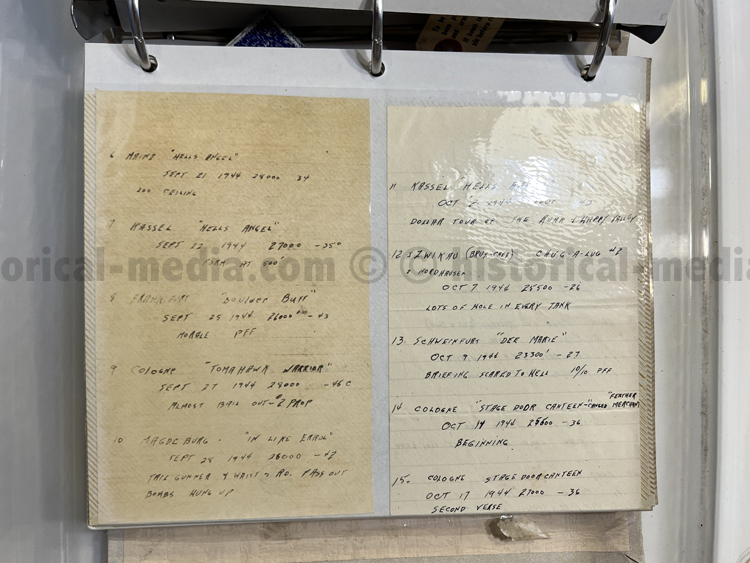 6 MAINZ "HELLS ANGEL"
SEPT 21 1944 28000 34
200 CEILING
7 KASSEL "HELLS ANGEL"
SEPT 22 1944 27000 -35°
FORM AT 500'
8 FRANKFURT "BOULDER BUFF"
SEPT 25 1944 26000 -43
MORALE PFF
9 COLOGNE "TOMAHAWK WARRIOR"
SEPT 27 1944 28000 -46 C
ALMOST BAIL OUT - #2 PROP
10 MAGDEBURG - "IN LIKE ERROL"
SEPT 28 1944 26000 -42
TAIL GUNNER & WAIST & RO. PASS OUT
BOMBS HUNG UP
11 KASSEL "HELLS
OCT 2 1944
DOLLAR TOUR OF THE RUHR & HAPPY VALLEY
12 ZWIKAU CHUG-A-LUG #2
NORDHAUSEN
OCT 7 1944 25500 -26
LOTS OF HOLE IN EVERY TANK
13. SCHWEINFURT "DER MARIE"
OCT 9 1944 23300' -27
BRIEFING SCARED TO HELL 10/10 PFF
14 COLOGNE "STAGE DOOR CANTEEN" "FEATHER MERCHANT
OCT 14 1944 25600 -36
BEGINNING
15. COLOGNE STAGE DOOR CANTEEN
OCT 17 1944 27000 -36
SECOND VERSE
orical-media.com © historical-media